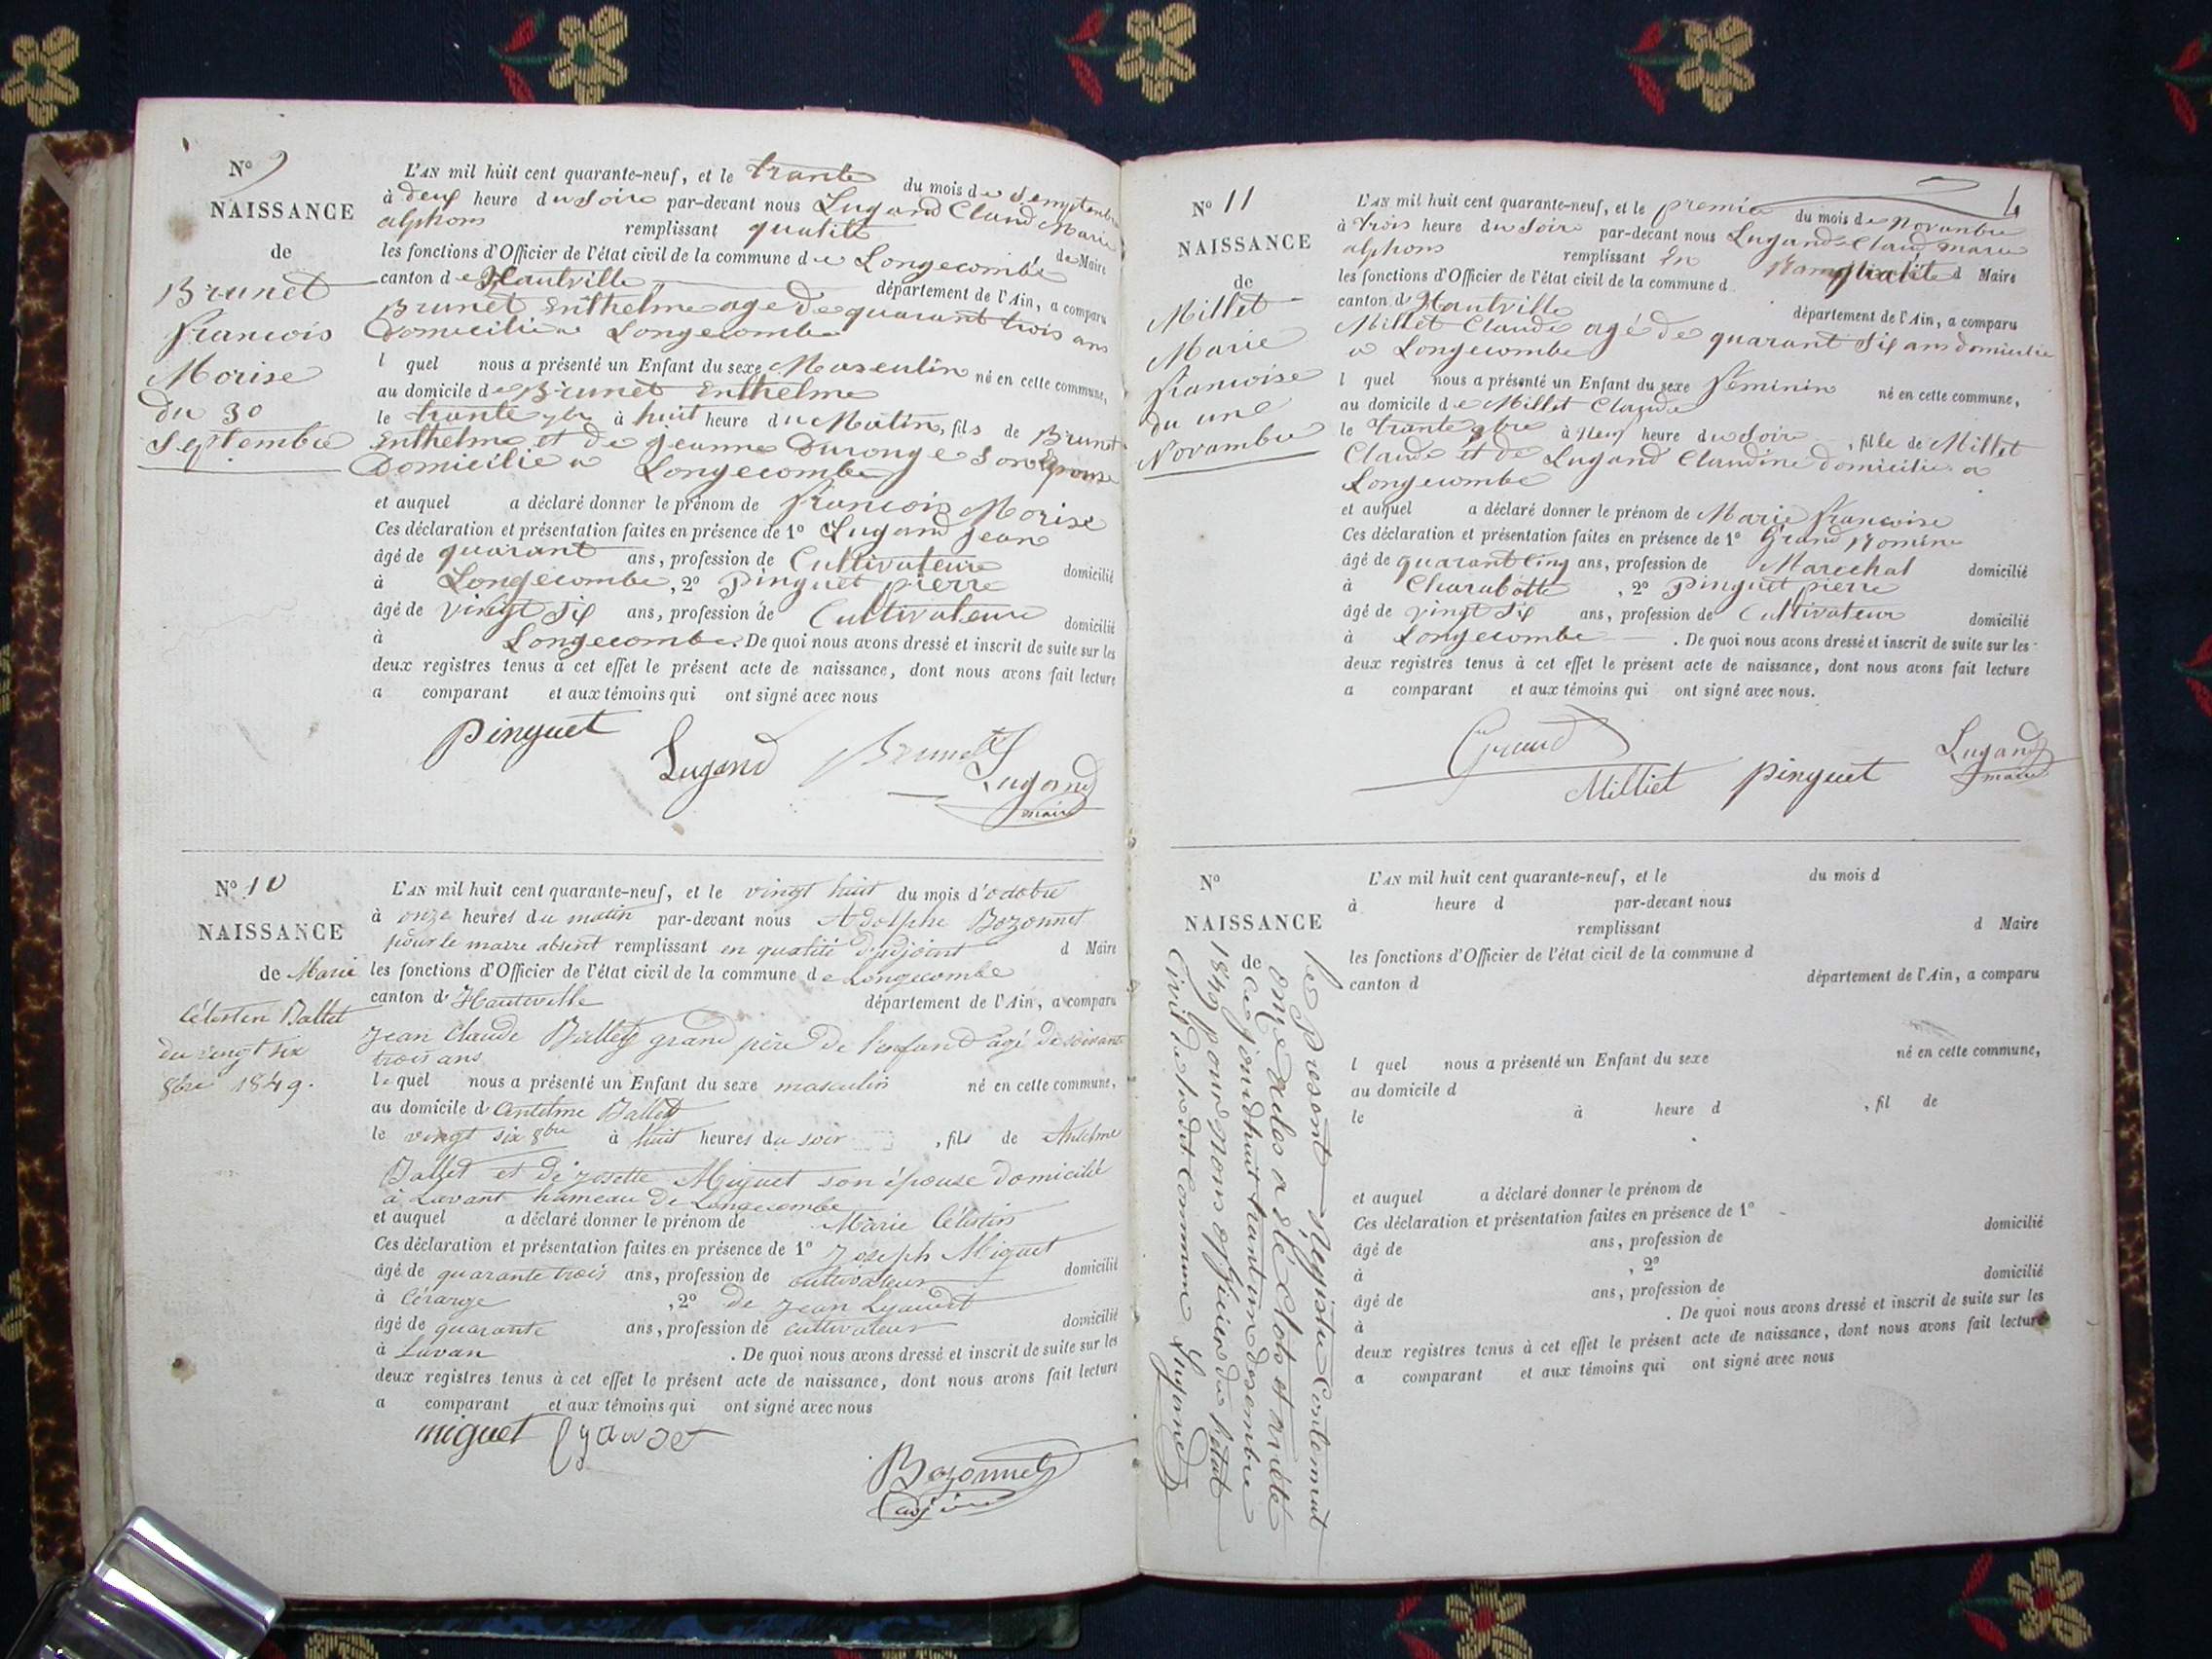 N° 9
NAISSANCE
de
Brunet
francois
Morise
du 30
Septembre
L'AN mil huit cent quarante-neuf, et le trante du mois de Semptembre
à deux heure du Soire par-devant nous Lugand Claud Marie
alphons remplissant qualité de Maire
les fonctions d'Officier de l'état civil de la commune de Longecombe
canton de Hautville département de l'Ain, a comparu
Brunet Enthelme age de quarant trois ans
Domicilié a Longecombe
l quel nous a présenté un Enfant du sexe Masculin né en cette commune,
au domicile de Brunet Enthelme
le trante 7bre à huit heure du Matin, fils de Brunet
Enthelme et de Jeanne Duronge Son Epouse
Domicilie a Longecombe
et auquel a déclaré donner le prénom de francois Morise
Ces déclaration et présentation faites en présence de 1° Lugand Jean
âgé de quarant ans, profession de Cultivateure domicilié
à Longecombe, 2° Pinguet pierre
âgé de vingt six ans, profession de Cultivateure domicilié
à Longecombe. De quoi nous avons dressé et inscrit de suite sur les
deux registres tenus à cet effet le présent acte de naissance, dont nous avons fait lecture
a comparant et aux témoins qui ont signé avec nous
Pinguet Lugand Brunet
Lugand
maire
N° 10
NAISSANCE
de Marie
Célestin Ballet
du vingt six
8bre 1849.
L'AN mil huit cent quarante-neuf, et le vingt huit du mois d'octobre
à onze heures du matin par-devant nous Adolphe Bozonnet
pour le maire absent remplissant en qualité d'adjoint d Maire
les fonctions d'Officier de l'état civil de la commune de Longecombe
canton d'Hauteville département de l'Ain, a comparu
Jean Claude Ballet grand père de l'enfand agé de soixante
trois ans
le quel nous a présenté un Enfant du sexe masculin né en cette commune,
au domicile d'Antelme Ballet
le vingt six 8bre à huit heures du soir, fils de Antelme
Ballet et de Josette Miguet son épouse domicilié
à Lavant hameau de Longecombe
et auquel a déclaré donner le prénom de Marie Célestin
Ces déclaration et présentation faites en présence de 1° Joseph Miguet
âgé de quarante trois ans, profession de cultivateur domicilié
à Cérarge, 2° de Jean Lyaudet
âgé de quarante ans, profession de cultivateur domicilié
à Lavan. De quoi nous avons dressé et inscrit de suite sur les
deux registres tenus à cet effet le présent acte de naissance, dont nous avons fait lecture
a comparant et aux témoins qui ont signé avec nous
miguet lyaudet
Bozonnet
adjoint
4
N° 11
NAISSANCE
de
Millet
Marie
francoise
du une
Novambre
L'AN mil huit cent quarante-neuf, et le premier du mois de Novanbre
à trois heure du Soire par-devant nous Lugand Claud marie
alphons remplissant En qualité d Maire
les fonctions d'Officier de l'état civil de la commune d
canton d'Hautville département de l'Ain, a comparu
Millet Claude agé de quarant Six ans domicilie
a Longecombe
l quel nous a présenté un Enfant du sexe feminin né en cette commune,
au domicile de Millet Claude
le trante 8bre à Neuf heure du Soire, fille de Millet
Claude et de Lugand Claudine domicilie a
Longecombe
et auquel a déclaré donner le prénom de Marie francoise
Ces déclaration et présentation faites en présence de 1° Grand Romain
âgé de quarant Cinq ans, profession de Marechal domicilié
à Charabotte, 2° Pinguet pierre
âgé de vingt Six ans, profession de Cultivateur domicilié
à Longecombe. De quoi nous avons dressé et inscrit de suite sur les
deux registres tenus à cet effet le présent acte de naissance, dont nous avons fait lecture
a comparant et aux témoins qui ont signé avec nous.
Grand
Milliet pinguet Lugand
maire
N°
NAISSANCE
de
L'AN mil huit cent quarante-neuf, et le du mois d
à heure d par-devant nous
remplissant d Maire
les fonctions d'Officier de l'état civil de la commune d
canton d département de l'Ain, a comparu
l quel nous a présenté un Enfant du sexe né en cette commune,
au domicile d
le à heure d, fil de
et auquel a déclaré donner le prénom de
Ces déclaration et présentation faites en présence de 1°
âgé de ans, profession de domicilié
à, 2°
âgé de ans, profession de domicilié
à. De quoi nous avons dressé et inscrit de suite sur les
deux registres tenus à cet effet le présent acte de naissance, dont nous avons fait lecture
a comparant et aux témoins qui ont signé avec nous
Le Present Registre Contenant
onze actes a été Clots et arrêté
ce jourdhuit trant un desembre
1849 pour nous officier de l'état
Civil de la dit Commune Lugand